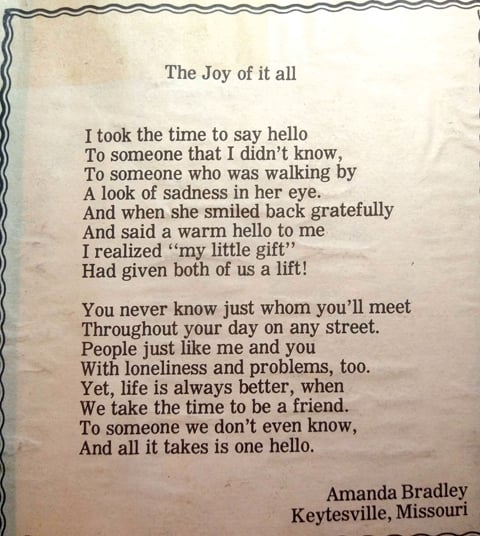 The Joy of it all
I took the time to say hello
To someone that I didn't know,
To someone who was walking by
A look of sadness in her eye.
And when she smiled back gratefully
And said a warm hello to me
I realized “my little gift”
Had given both of us a lift!
You never know just whom you'll meet
Throughout your day on any street.
People just like me and you
With loneliness and problems, too.
Yet, life is always better, when
We take the time to be a friend.
To someone we don't even know,
And all it takes is one hello.
Amanda Bradley
Keytesville, Missouri